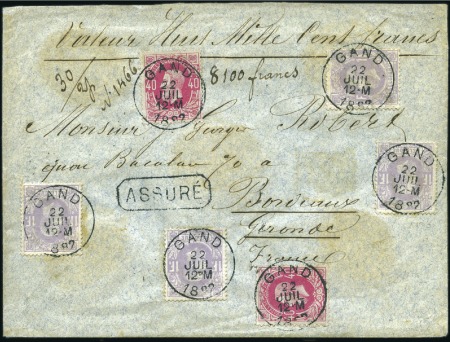 Valeur Huit Mille Cent francs
30 gr. N. 1466 8100 francs
GAND
22
JUIL
12-M
40 40
GAND
22
JUIL
12-M
Monsieur Georges Robert
GAND
22
JUIL
12-M
quai Bacalan 70 a
ASSURÉ
Bordeaux
GAND
22
JUIL
12-M
Gironde
GAND
22
JUIL
12-M
France
GAND
22
JUIL
12-M